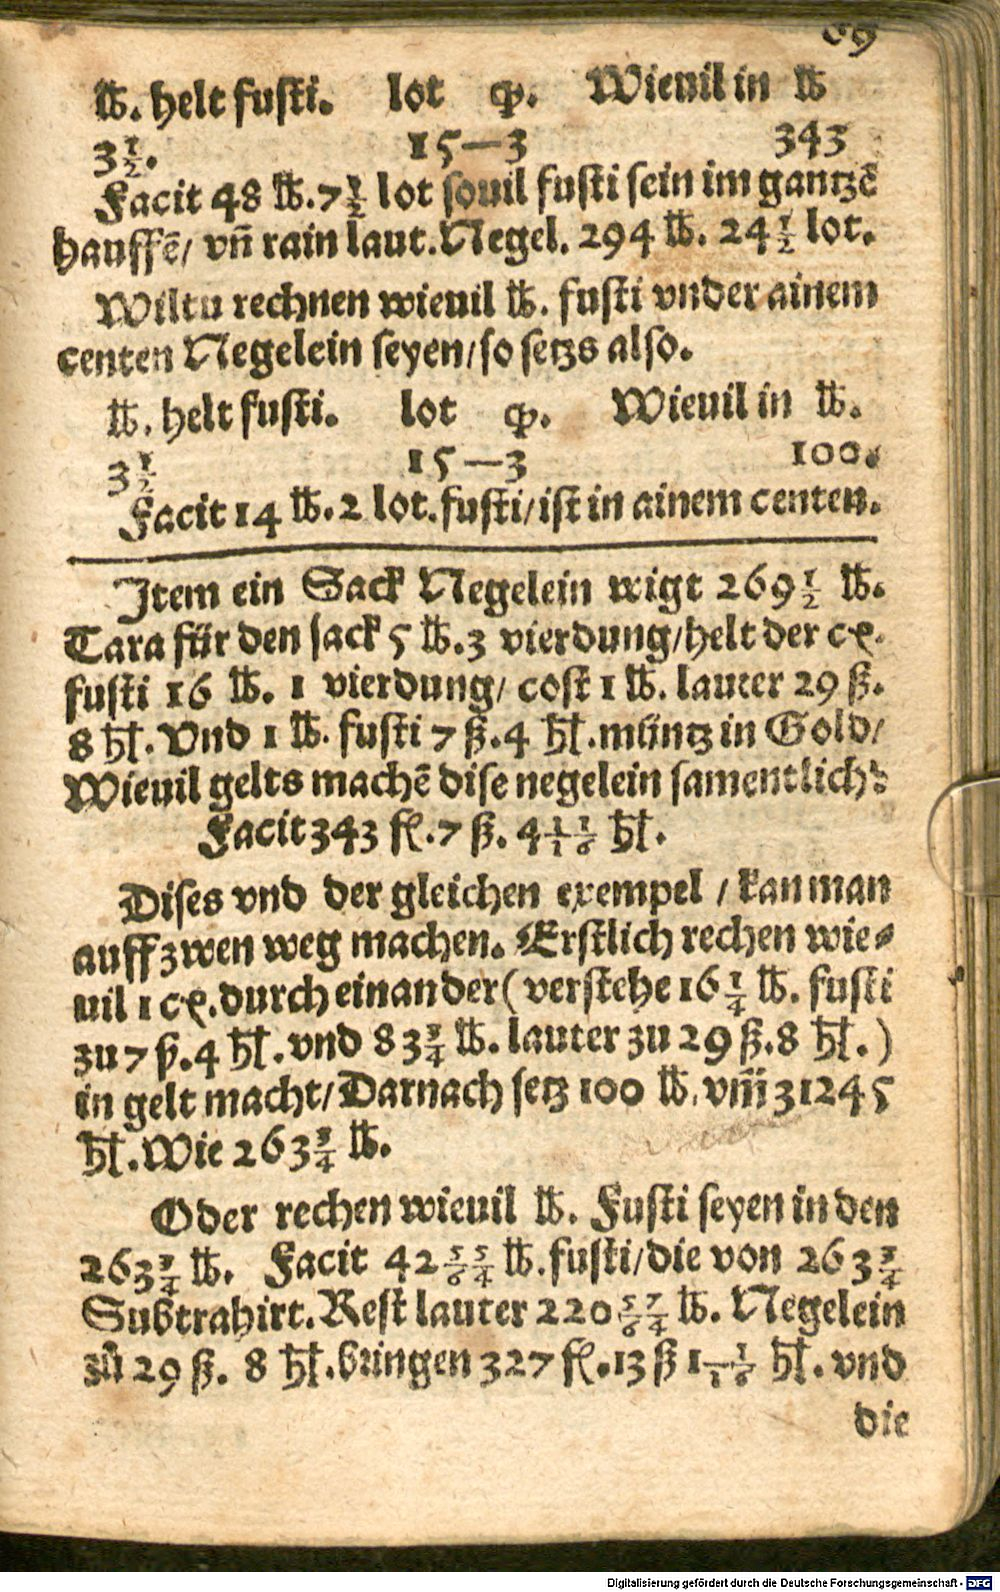 69
℔. helt fusti. lot q. Wieuil in ℔
3 1/2. 15—3 343
Facit 48 ℔. 7 1/2 lot souil fusti sein im gantzē
hauffē/ vñ rain laut. Negel. 294 ℔. 24 1/2 lot.
Wiltu rechnen wieuil ℔. fusti vnder ainem
centen Negelein seyen/ so setzs also.
℔. helt fusti. lot q. Wieuil in ℔.
3 1/2 15—3 100.
Facit 14 ℔. 2 lot. fusti/ ist in ainem centen.
Item ein Sack Negelein wigt 269 1/2 ℔.
Tara für den sack 5 ℔. 3 vierdung/ helt der cꝫ.
fusti 16 ℔. 1 vierdung/ cost 1 ℔. lauter 29 ß.
8 hl. Vnd 1 ℔. fusti 7 ß. 4 hl. müntz in Gold/
Wieuil gelts machē dise negelein samentlich?
Facit 343 fl. 7 ß. 4 1/1 1/6 hl.
Dises vnd der gleichen exempel / kan man
auff zwen weg machen. Erstlich rechen wie-
uil 1 cꝫ. durch einander (verstehe 16 1/4 ℔. fusti
zu 7 ß. 4 hl. vnd 83 3/4 ℔. lauter zu 29 ß. 8 hl.)
in gelt macht/ Darnach setz 100 ℔. vm̄ 31245
hl. Wie 263 3/4 ℔.
Oder rechen wieuil ℔. Fusti seyen in den
263 3/4 ℔. Facit 42 5/6 5/4 ℔. fusti/ die von 263 3/4
Subtrahirt. Rest lauter 220 5/6 7/4 ℔. Negelein
zů 29 ß. 8 hl. bringen 327 fl. 13 ß 1 1/1 1/6 hl. vnd
die
Digitalisierung gefördert durch die Deutsche Forschungsgemeinschaft - DFG